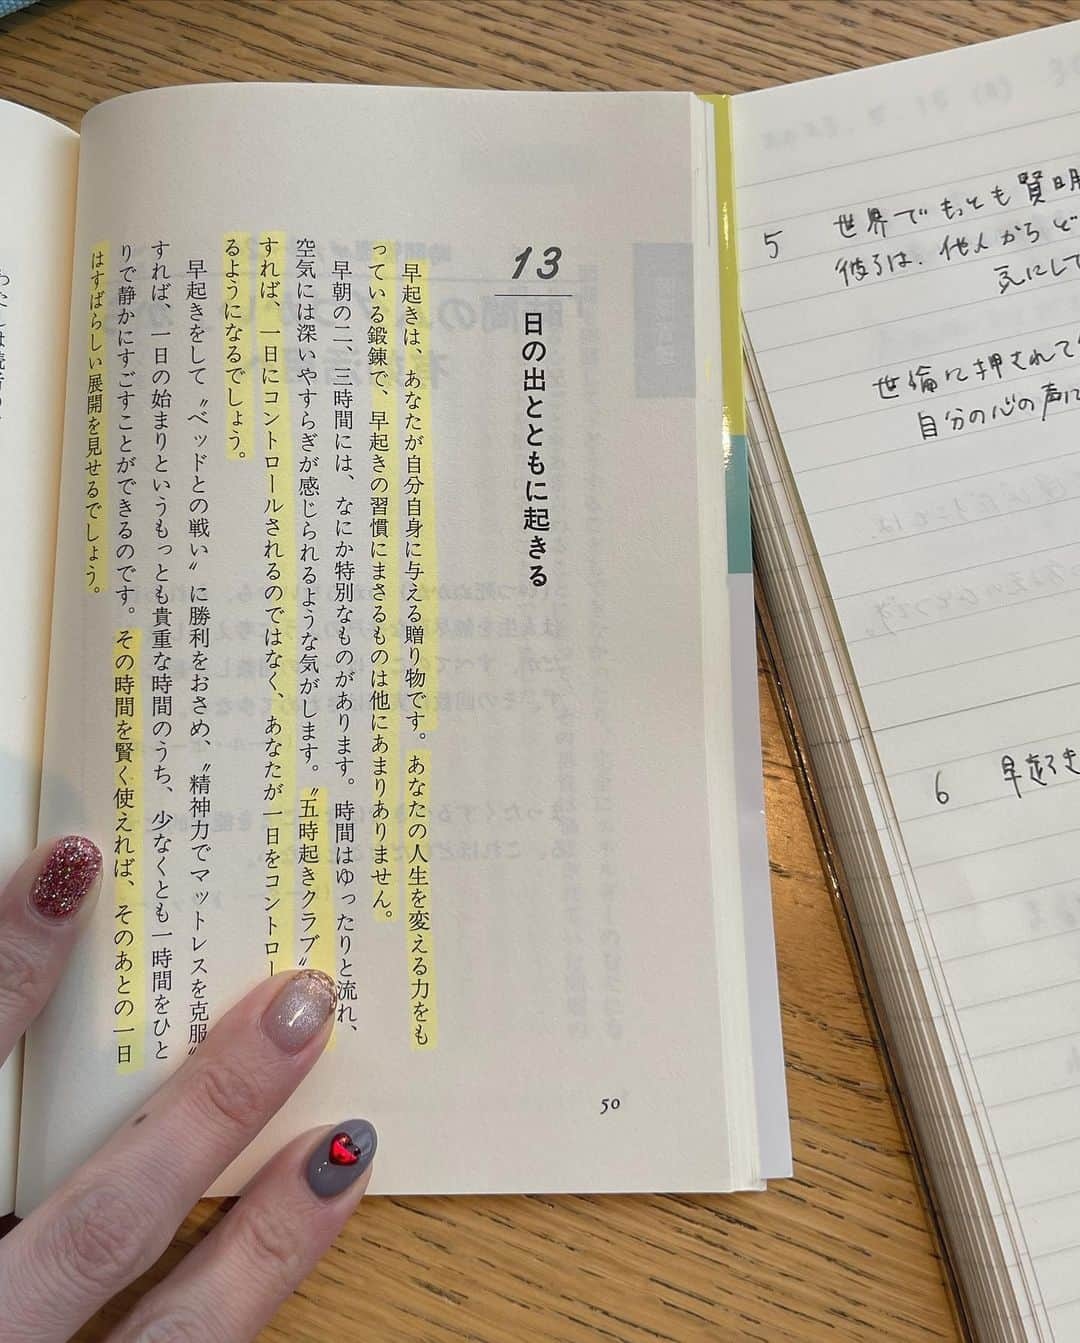 13
日の出とともに起きる
早起きは、あなたが自分自身に与える贈り物です。あなたの人生を変える力をも
っている鍛錬で、早起きの習慣にまさるものは他にあまりありません。
早朝の二、三時間には、なにか特別なものがあります。時間はゆったりと流れ、
空気には深いやすらぎが感じられるような気がします。〝五時起きクラブ〟
すれば、一日にコントロールされるのではなく、あなたが一日をコントロー
るようになるでしょう。
早起きをして〝ベッドとの戦い〟に勝利をおさめ、〝精神力でマットレスを克服〟
すれば、一日の始まりというもっとも貴重な時間のうち、少なくとも一時間をひと
りで静かにすごすことができるのです。その時間を賢く使えれば、そのあとの一日
はすばらしい展開を見せるでしょう。
50
5 世界でもっとも賢明
彼らは、他人からど
気にして
世論に押されて
自分の心の声に
6 早起き